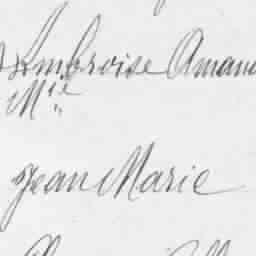 Ambroise Amand
Mie
Jean Marie